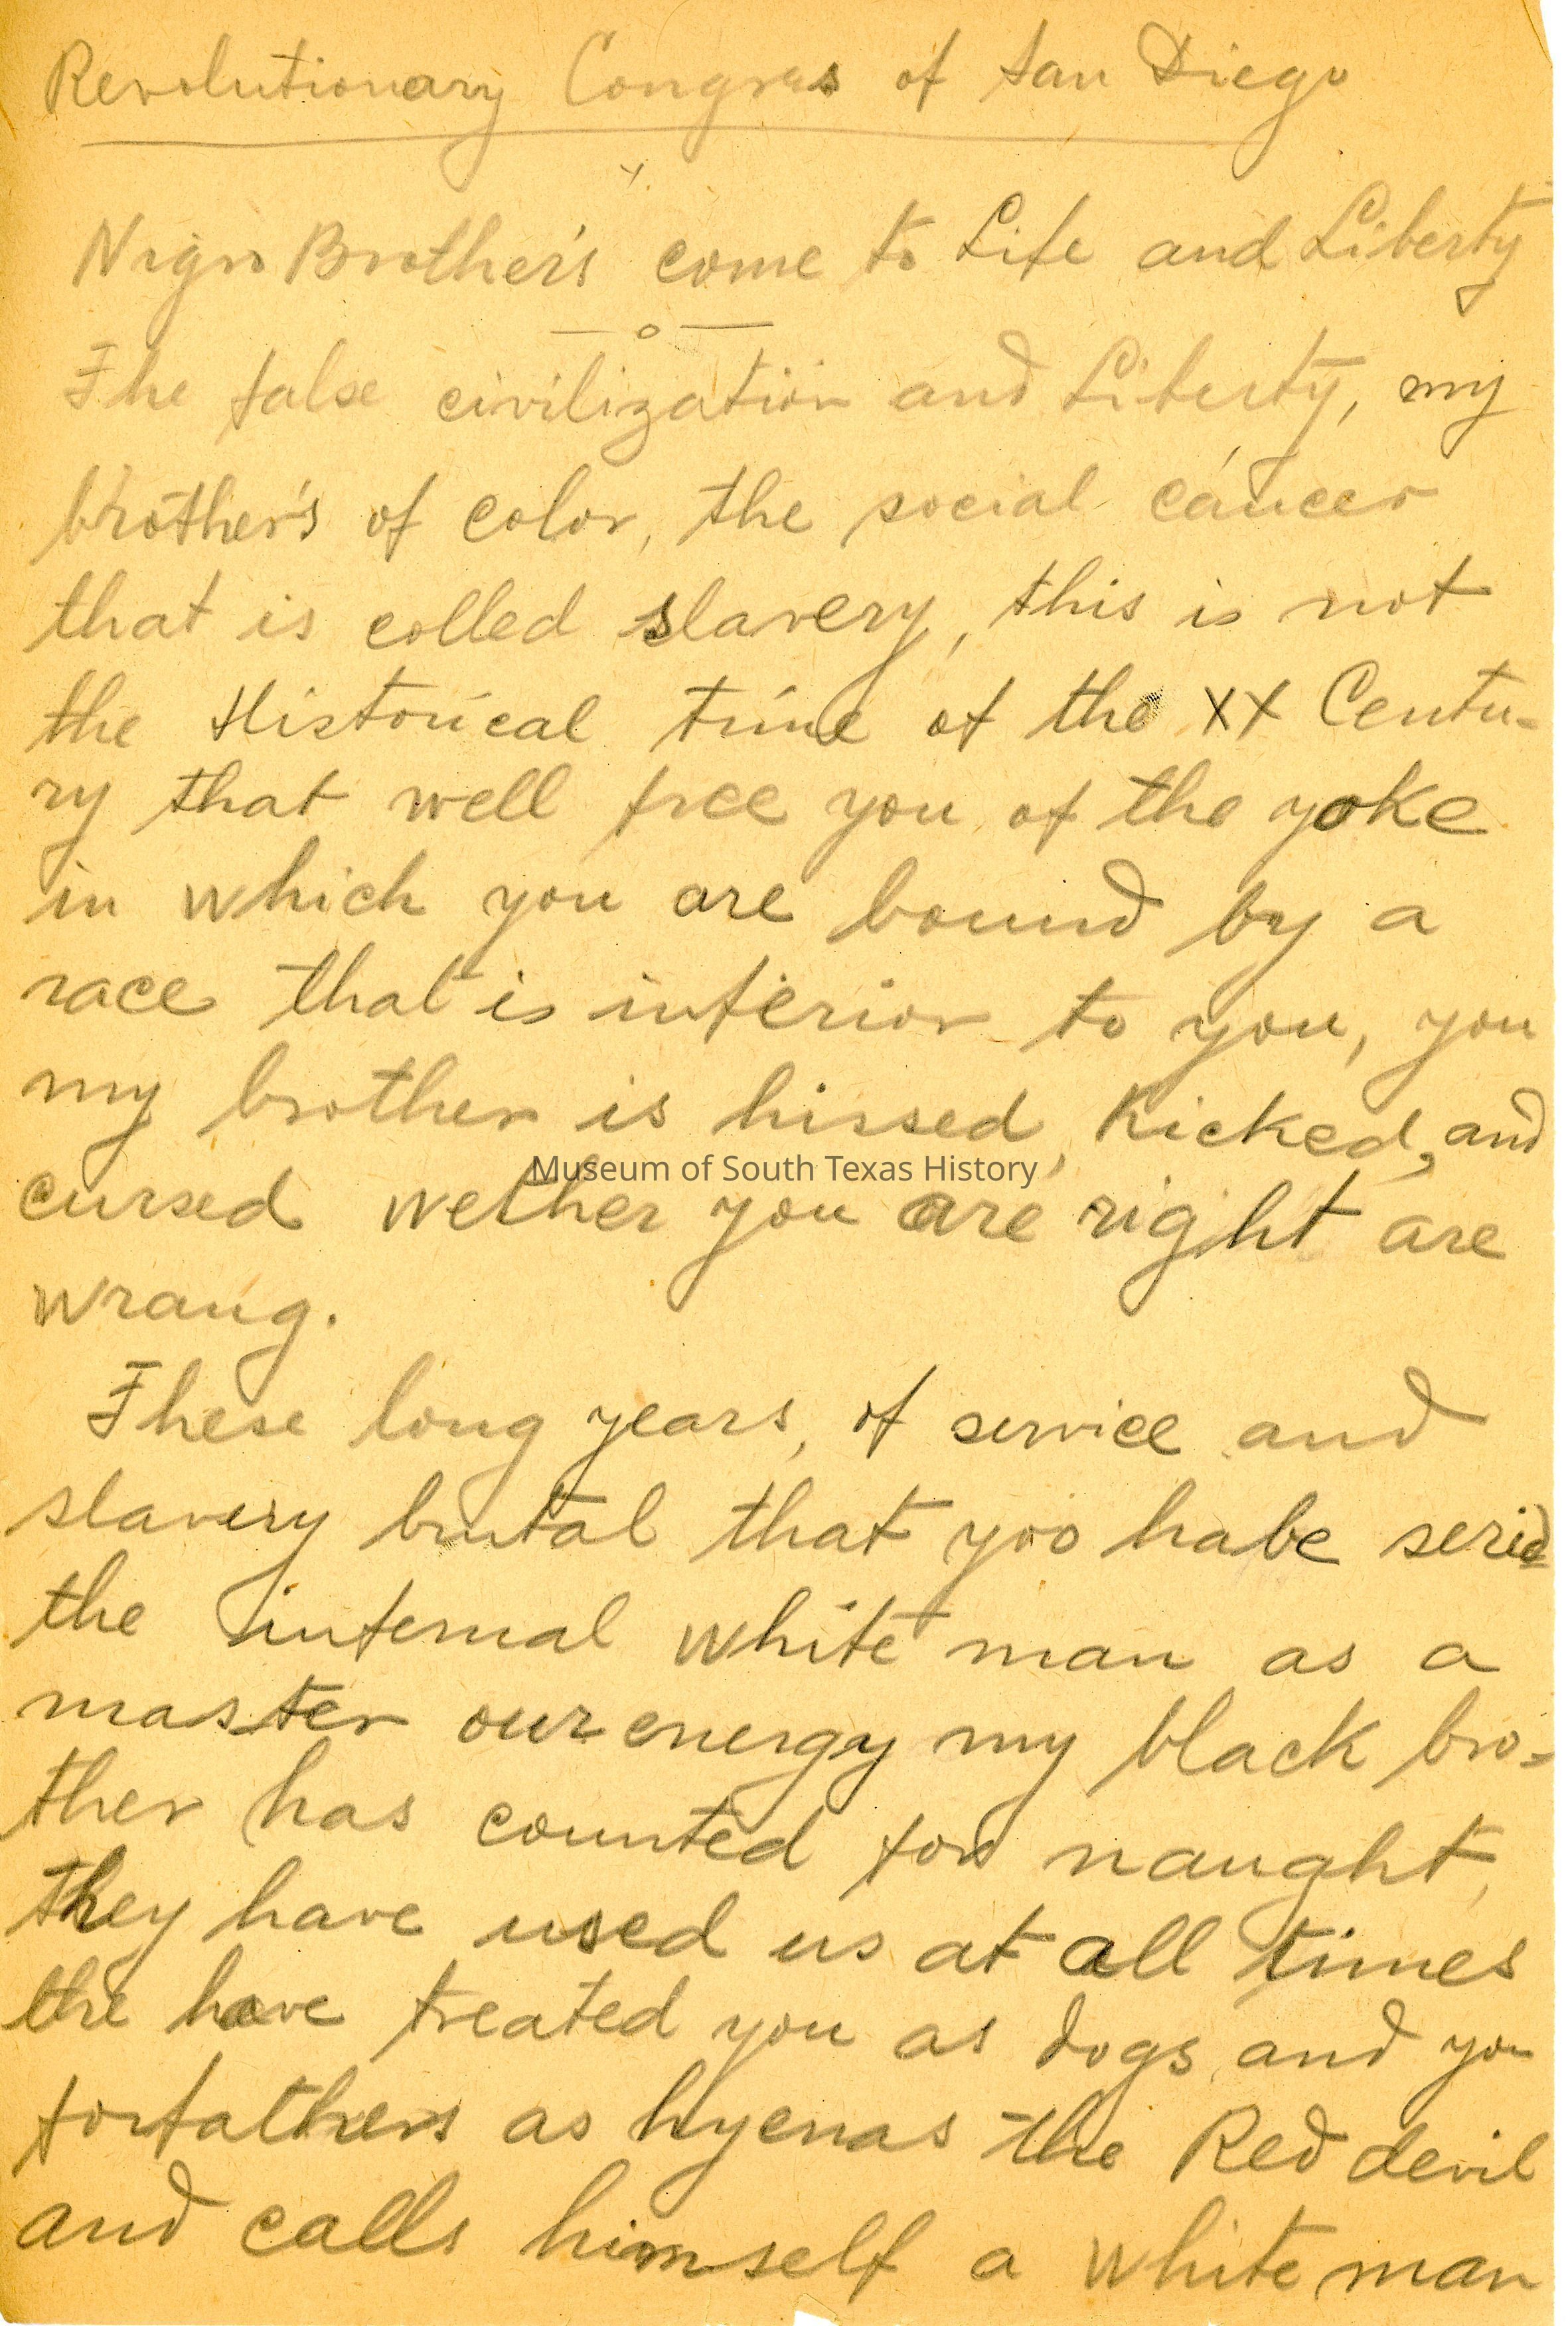 Revolutionary Congras of San Diego
Nigro Brother's come to Life and Liberty
—o—
The false civilization and Liberty, my
brother's of color, the social cancer
that is colled slavery, this is not
the Historical time of the XX Centu-
ry that well free you of the yoke
in which you are bound by a
race that is inferior to you, you
my brother is hissed, Kicked, and
Museum of South Texas History
cursed wether you are right are
wrang.
These long years, of service and
slavery brutal that yoo habe serid
the infernal white man as a
master our energy my black bro-
ther has counted for naught,
they have used us at all times
the have treated you as dogs and you
forfathers as hyenas the Red devil
and calls himself a white man